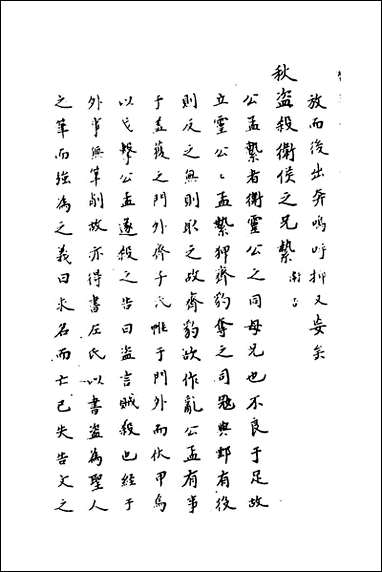 放而後出奔嗚呼抑又妄矣
秋盜殺衛侯之兄縶
公孟縶者衛靈公之同母兄也不良于足故
立靈公公孟縶狎齊豹奪之司寇與鄄有役
則反之無則取之故齊豹欲作亂公孟有事
于蓋獲之門外齊子氏帷于門外而伏甲焉
以戈擊公孟遂殺之告曰盜言賊殺也經于
外事無筆削故亦得書左氏以書盜為聖人
之筆而強為之義曰求名而亡已失告文之